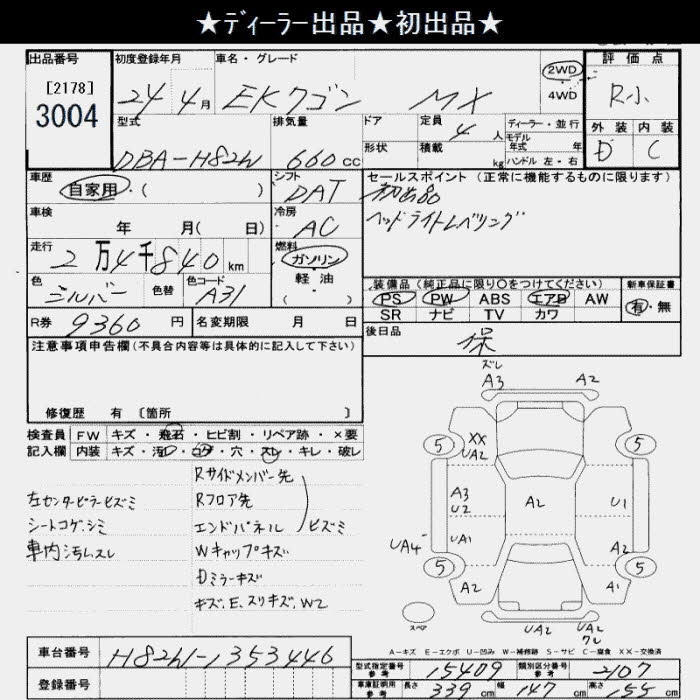 ★ディーラー出品★初出品★
出品番号 初度登録年月 車名・グレード 評価点
[2178]
3004
24年4月 EKワゴン MX 2WD R小
4WD
型式 排気量 ドア 定員 4人 ディーラー・並行 外装 内装
モデル年式 年
DBA-H82W 660cc 形状 積載 kg ハンドル 左・右 D C
車歴 シフト セールスポイント (正常に機能するものに限ります)
自家用・( ) DAT 初出品
車検 冷房 ヘッドライトレベリング
年 月(日) AC
走行 燃料
2万4千840km ガソリン
色 色替 色コード 軽油 装備品 (純正品に限り〇をつけてください) 新車保証書
シルバー A31 ・( ) PS PW ABS エアB AW 有・無
SR ナビ TV カワ
R券 9360円 名変期限 月 日 後日品 保
注意事項申告欄(不具合内容等は具体的に記入して下さい)
修復歴 有 〔箇所 〕
検査員 FW キズ・飛石・ヒビ割・リペア跡・×要
記入欄 内装 キズ・汚レ・コゲ・穴・スレ・キレ・破レ
Rサイドメンバー先
左センターピラーヒズミ Rフロア先
シートコゲ、シミ エンドパネル ヒズミ
車内汚レ、スレ Wキャップキズ
Dミラーキズ
キズ、E、スリキズ、W2
ズレ
A3 A2
5 XX UA2 5
A3 U2 A2 U1
UA4 UA1 A2
5 A2 A1 5
スペア UA2 UA2 ワレ
A-キズ E-エクボ U-凹み W-補修跡 S-サビ C-腐食 XX-交換済
車台番号 H82W-1353446
型式指定番号 参考 15409 類別区分番号 参考 2107
登録番号
車庫証明用 参考 長さ 339cm 幅 147cm 高さ 155cm